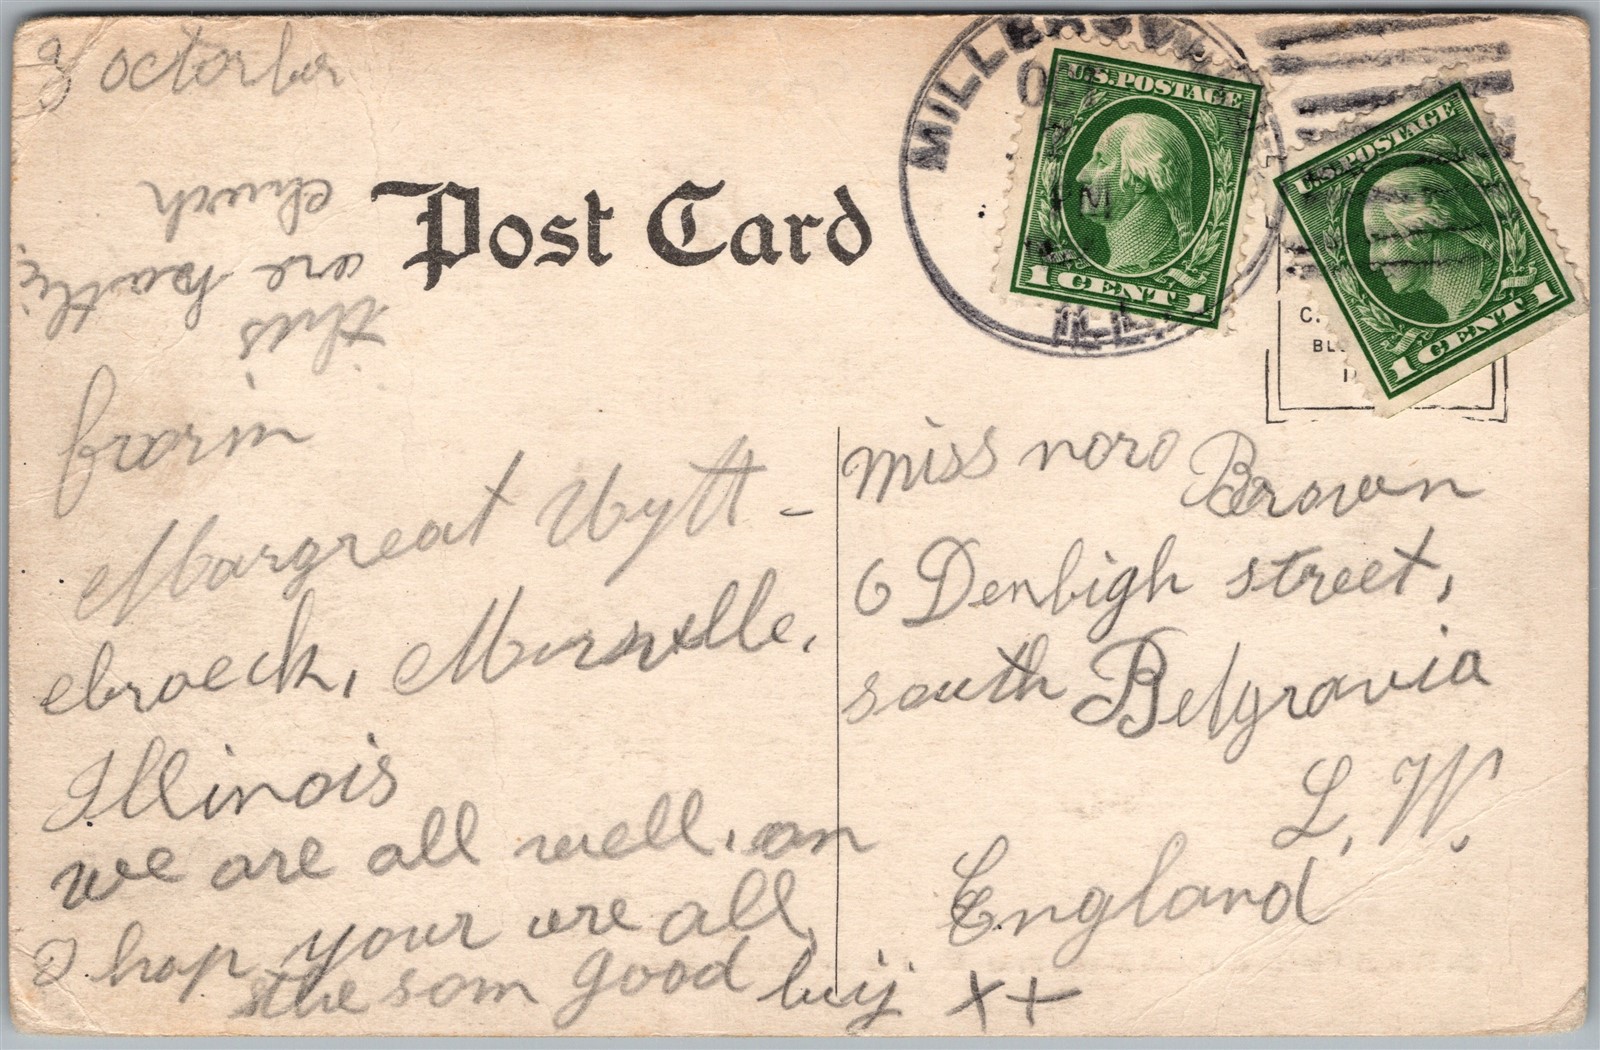 8 octorber
Post Card
this
are
church
MILLERSV
OCT
2
PM
ILL.
U.S. POSTAGE
1 CENT 1
U.S. POSTAGE
1 CENT 1
C.
BL
from
Margreat Wytt-
ebroeck,
Illinois
we are all well, an
I hop your are all
the som good buij ++
miss noro Brown
6 Denbigh street,
south Belgravia
L. W.
England